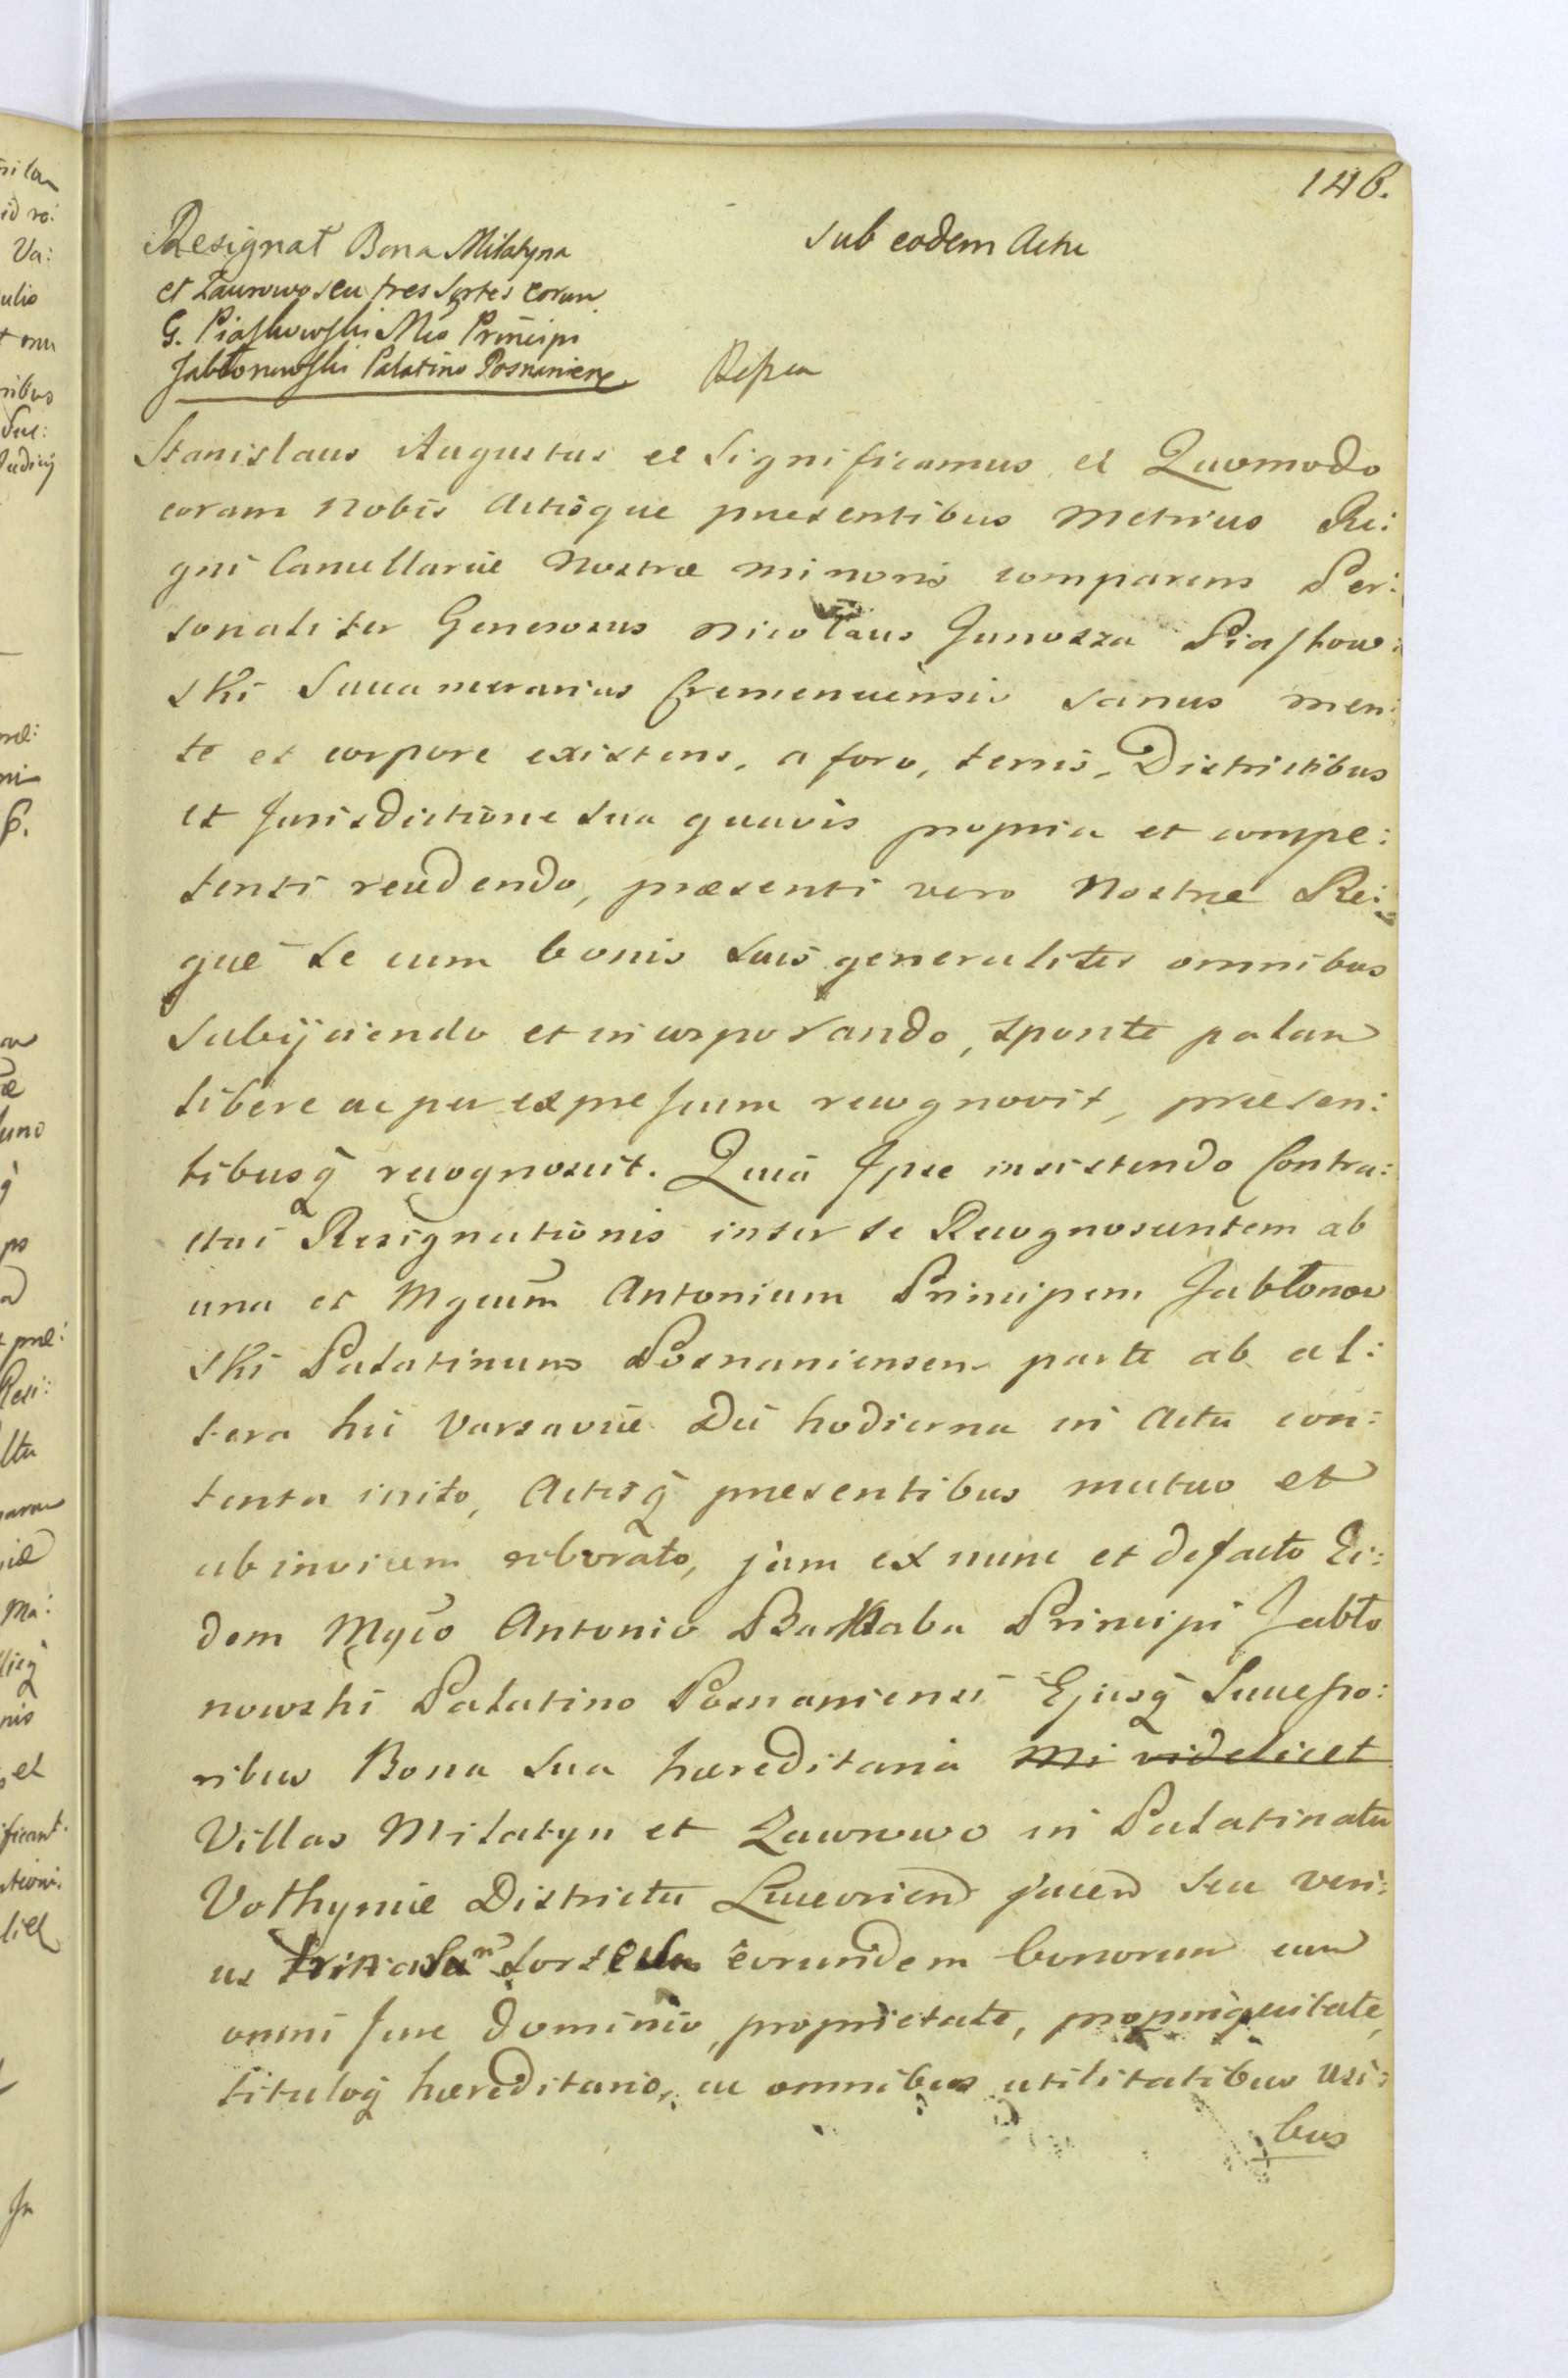 146.
Resignat Bona Milatyna
et Zawrowo seu tres sortes eorum
G. Piaskowski Mco Principi
Jabłonowski Palatino Posnanien.
sub eodem Actu
Stanislaus Augustus et Significamus et Quomodo
coram Nobis Actisque præsentibus Metrices Re:
gni Cancellariæ Nostræ minoris comparens Per:
sonaliter Generosus Nicolaus Junosza Piaskow:
ski Succamerarius Cremenecensis sanus men:
te et corpore existens, a foro, terris, Districtibus
et Jurisdictione sua quavis propria et compe:
tenti recedendo, præsenti vero Nostræ Re:
giæ se cum bonis suis generaliter omnibus
subijciendo et incorporando, sponte palam
libere ac per expressum recognovit, præsen:
tibusq recognoscit. Quia Ipse insistendo Contra:
ctui Resignationis inter se Recognoscentem ab
una et Mgcum Antonium Principem Jabłonow
ski Palatinum Posnaniensem parte ab al:
tera hic Varsaviæ Die hodierna in Actu con:
tenta inito, Actisq præsentibus mutuo et
ab invicem roborato, jam ex nunc et defacto Ei:
dem Mgco Antonio Barnaba Principi Jabło
nowski Palatino Posnaniensi Ejusq Successo:
ribus Bona sua hæreditaria Mi videlicet
Villas Milatyn et Zawrowo in Palatinatu
Volhyniæ Districtu Luceorien jacen seu veri:
us eorundem bonorum cum
omni Jure Dominio, proprietate, propinquitate,
tituloq hæreditario, ac omnibus utilitatibus usi:
bus